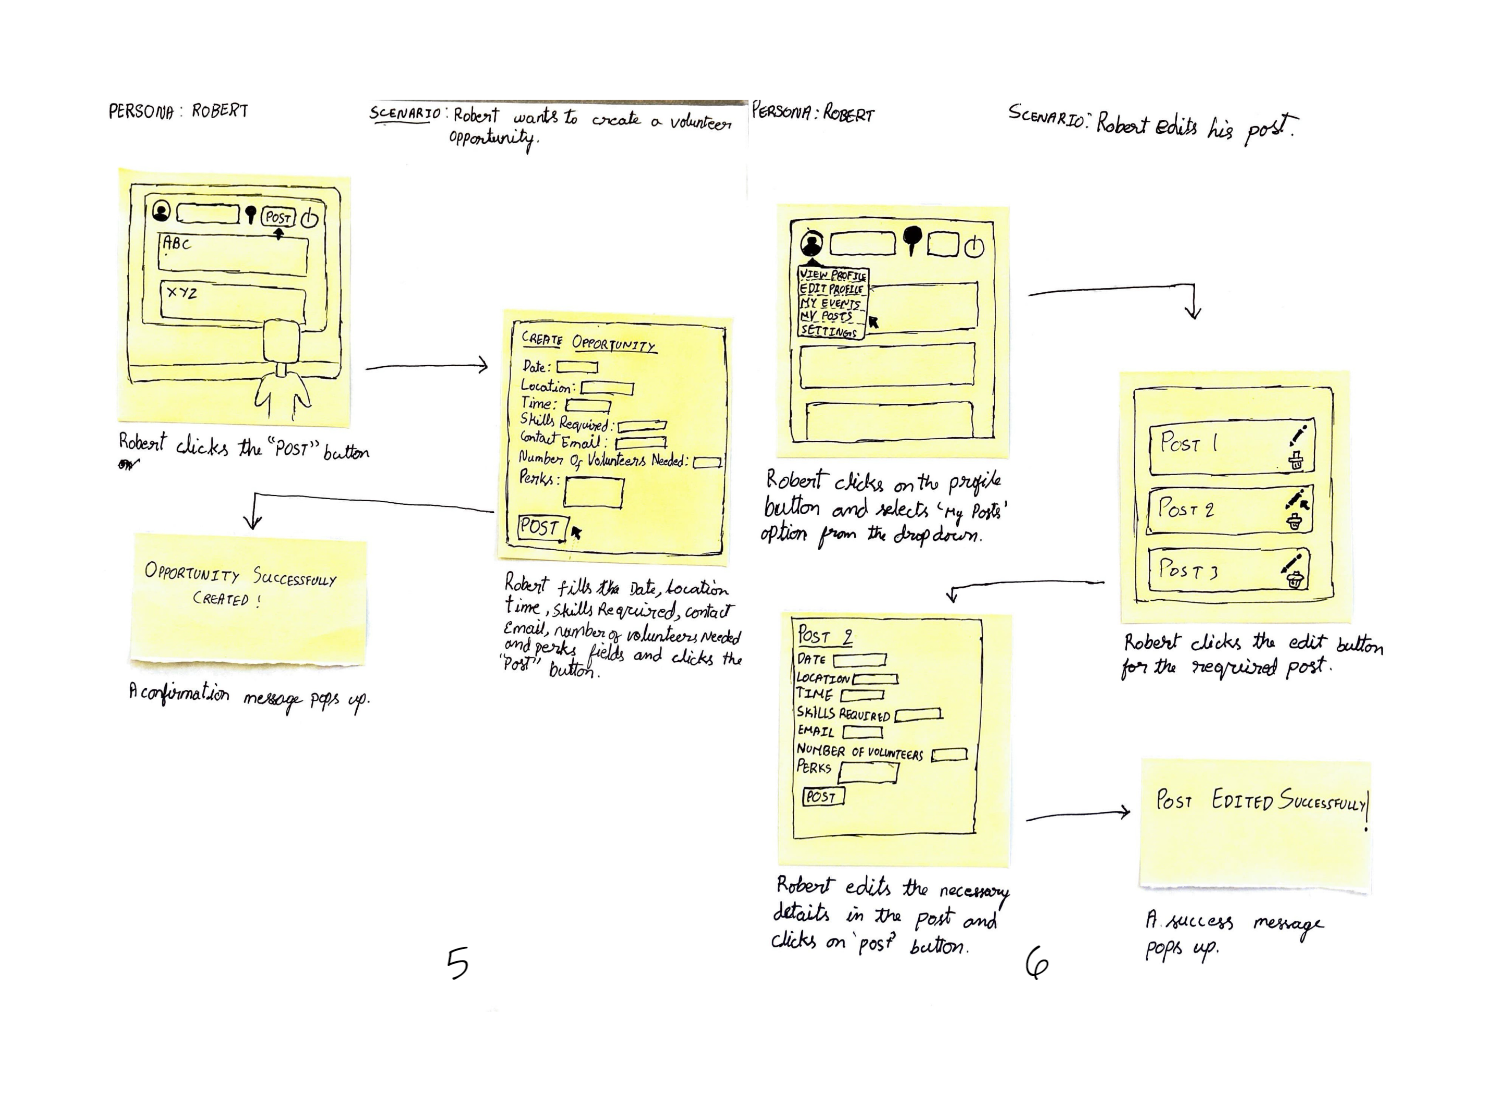 PERSONA: ROBERT
SCENARIO: Robert wants to create a volunteer
opportunity.
POST
ABC
XYZ
Robert clicks the "POST" button
CREATE OPPORTUNITY
Date:
Location:
Time:
Skills Required:
Contact Email:
Number Of Volunteers Needed:
Perks:
POST
Robert fills the Date, Location
time, Skills Required, contact
Email, number of volunteers Needed
and perks fields and clicks the
"Post" button.
OPPORTUNITY SUCCESSFULLY
CREATED!
A confirmation message pops up.
5
PERSONA: ROBERT
SCENARIO: Robert edits his post.
VIEW PROFILE
EDIT PROFILE
MY EVENTS
MY POSTS
SETTINGS
Robert clicks on the profile
button and selects 'My Posts'
option from the dropdown.
POST 1
POST 2
POST 3
Robert clicks the edit button
for the required post.
POST 2
DATE
LOCATION
TIME
SKILLS REQUIRED
EMAIL
NUMBER OF VOLUNTEERS
PERKS
POST
Robert edits the necessary
details in the post and
clicks on 'post' button.
POST EDITED SUCCESSFULLY!
A success message
pops up.
6